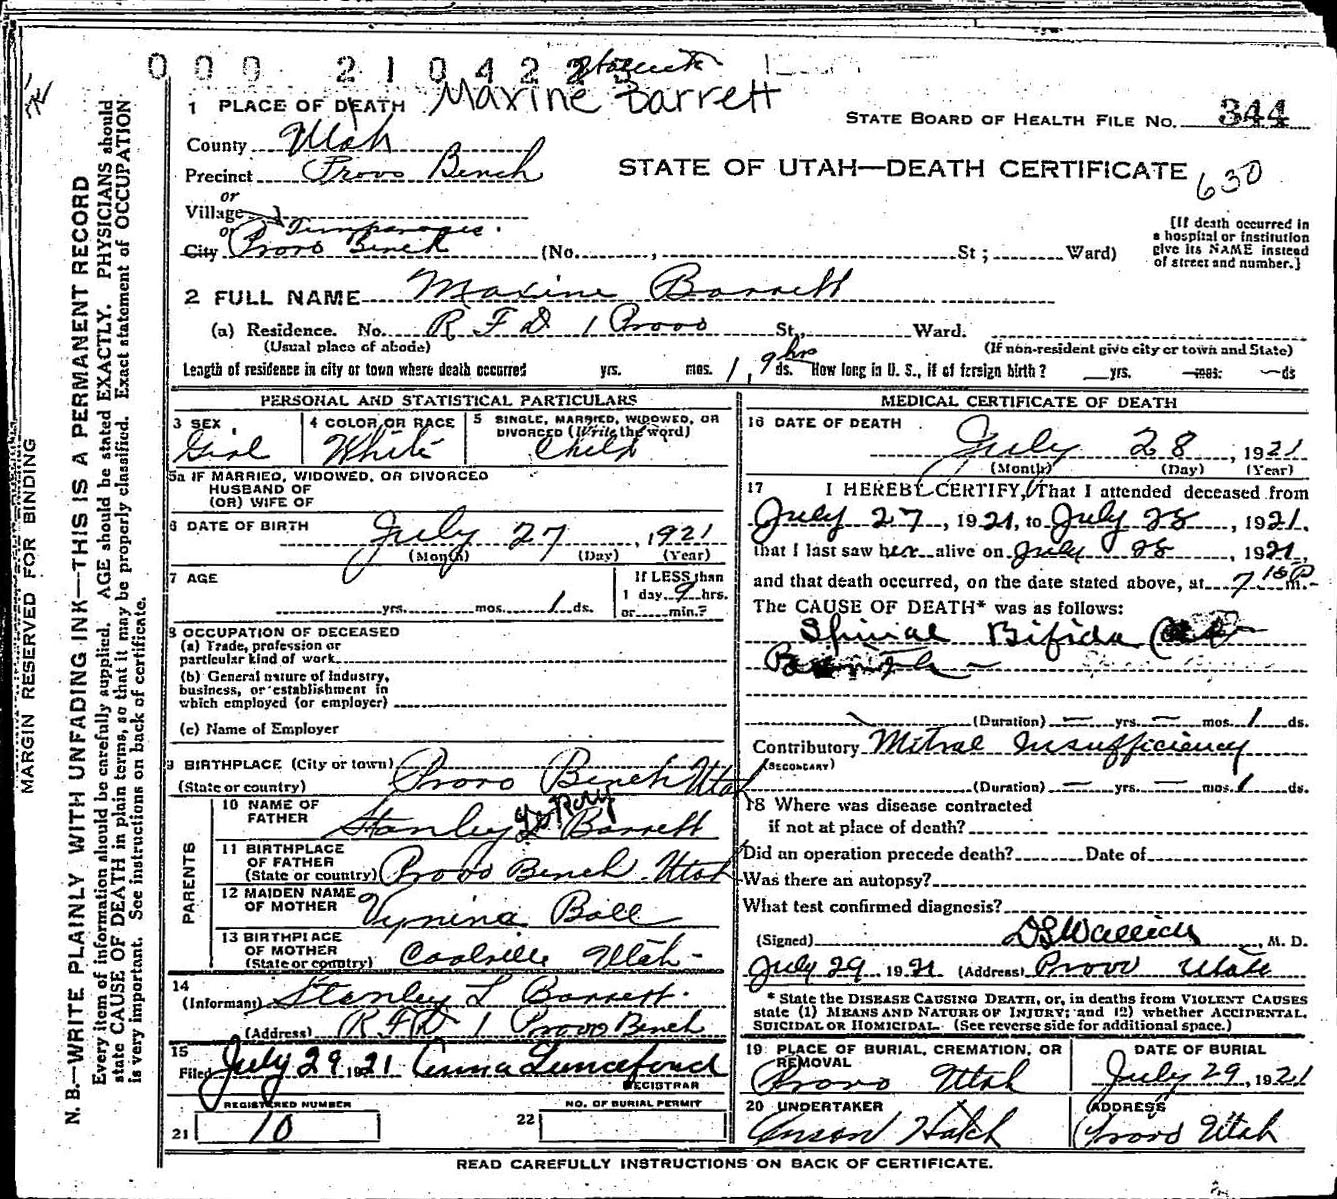 0 0 0 2 1 0 4 2 2
Maxine Barrett
1 PLACE OF DEATH
STATE BOARD OF HEALTH FILE NO. 344
County Utah
Precinct Provo Bench
STATE OF UTAH—DEATH CERTIFICATE 630
or
Village Timpanogos
or
City Provo Bench (No. , St ; Ward)
[If death occurred in
a hospital or institution
give its NAME instead
of street and number.]
2 FULL NAME Maxine Barrett
(a) Residence. No. R F D 1 Provo St., Ward.
(Usual place of abode)
(If non-resident give city or town and State)
Length of residence in city or town where death occurred yrs. mos. 1, 9 hrs ds. How long in U. S., if of foreign birth? yrs. mos. ds
PERSONAL AND STATISTICAL PARTICULARS
3 SEX Girl
4 COLOR OR RACE White
5 SINGLE, MARRIED, WIDOWED, OR
DIVORCED (Write the word)
Child
5a IF MARRIED, WIDOWED, OR DIVORCED
HUSBAND OF
(OR) WIFE OF
6 DATE OF BIRTH July 27, 1921
(Month) (Day) (Year)
7 AGE yrs. mos. 1 ds.
If LESS than
1 day 9 hrs.
or min.?
8 OCCUPATION OF DECEASED
(a) Trade, profession or
particular kind of work
(b) General nature of industry,
business, or establishment in
which employed (or employer)
(c) Name of Employer
9 BIRTHPLACE (City or town) Provo Bench Utah
(State or country)
PARENTS
10 NAME OF
FATHER Stanley L Barrett
LeRoy
11 BIRTHPLACE
OF FATHER
(State or country) Provo Bench Utah
12 MAIDEN NAME
OF MOTHER Vynina Ball
13 BIRTHPLACE
OF MOTHER
(State or country) Coalville Utah
14
(Informant) Stanley L Barrett
(Address) R F D 1 Provo Bench
15
Filed July 29 1921 Anna Lunceford
REGISTRAR
REGISTERED NUMBER
21 10
NO. OF BURIAL PERMIT
22
MEDICAL CERTIFICATE OF DEATH
16 DATE OF DEATH
July 28, 1921
(Month) (Day) (Year)
17 I HEREBY CERTIFY, That I attended deceased from
July 27, 1921, to July 28, 1921.
that I last saw her alive on July 28, 1921,
and that death occurred, on the date stated above, at 7 15 P m.
The CAUSE OF DEATH* was as follows:
Spinal Bifida
(Duration) yrs. mos. 1 ds.
Contributory Mitral Insufficiency
(SECONDARY)
(Duration) yrs. mos. 1 ds.
18 Where was disease contracted
if not at place of death?
Did an operation precede death? Date of
Was there an autopsy?
What test confirmed diagnosis?
(Signed) , M. D.
July 29, 1921 (Address) Provo Utah
* State the DISEASE CAUSING DEATH, or, in deaths from VIOLENT CAUSES
state (1) MEANS AND NATURE OF INJURY; and (2) whether ACCIDENTAL,
SUICIDAL OR HOMICIDAL. (See reverse side for additional space.)
19 PLACE OF BURIAL, CREMATION, OR
REMOVAL
Provo Utah
DATE OF BURIAL
July 29, 1921
20 UNDERTAKER
Anson Hatch
ADDRESS
Provo Utah
READ CAREFULLY INSTRUCTIONS ON BACK OF CERTIFICATE.
MARGIN RESERVED FOR BINDING
N. B.—WRITE PLAINLY WITH UNFADING INK—THIS IS A PERMANENT RECORD
Every item of information should be carefully supplied. AGE should be stated EXACTLY. PHYSICIANS should
state CAUSE OF DEATH in plain terms, so that it may be properly classified. Exact statement of OCCUPATION
is very important. See instructions on back of certificate.